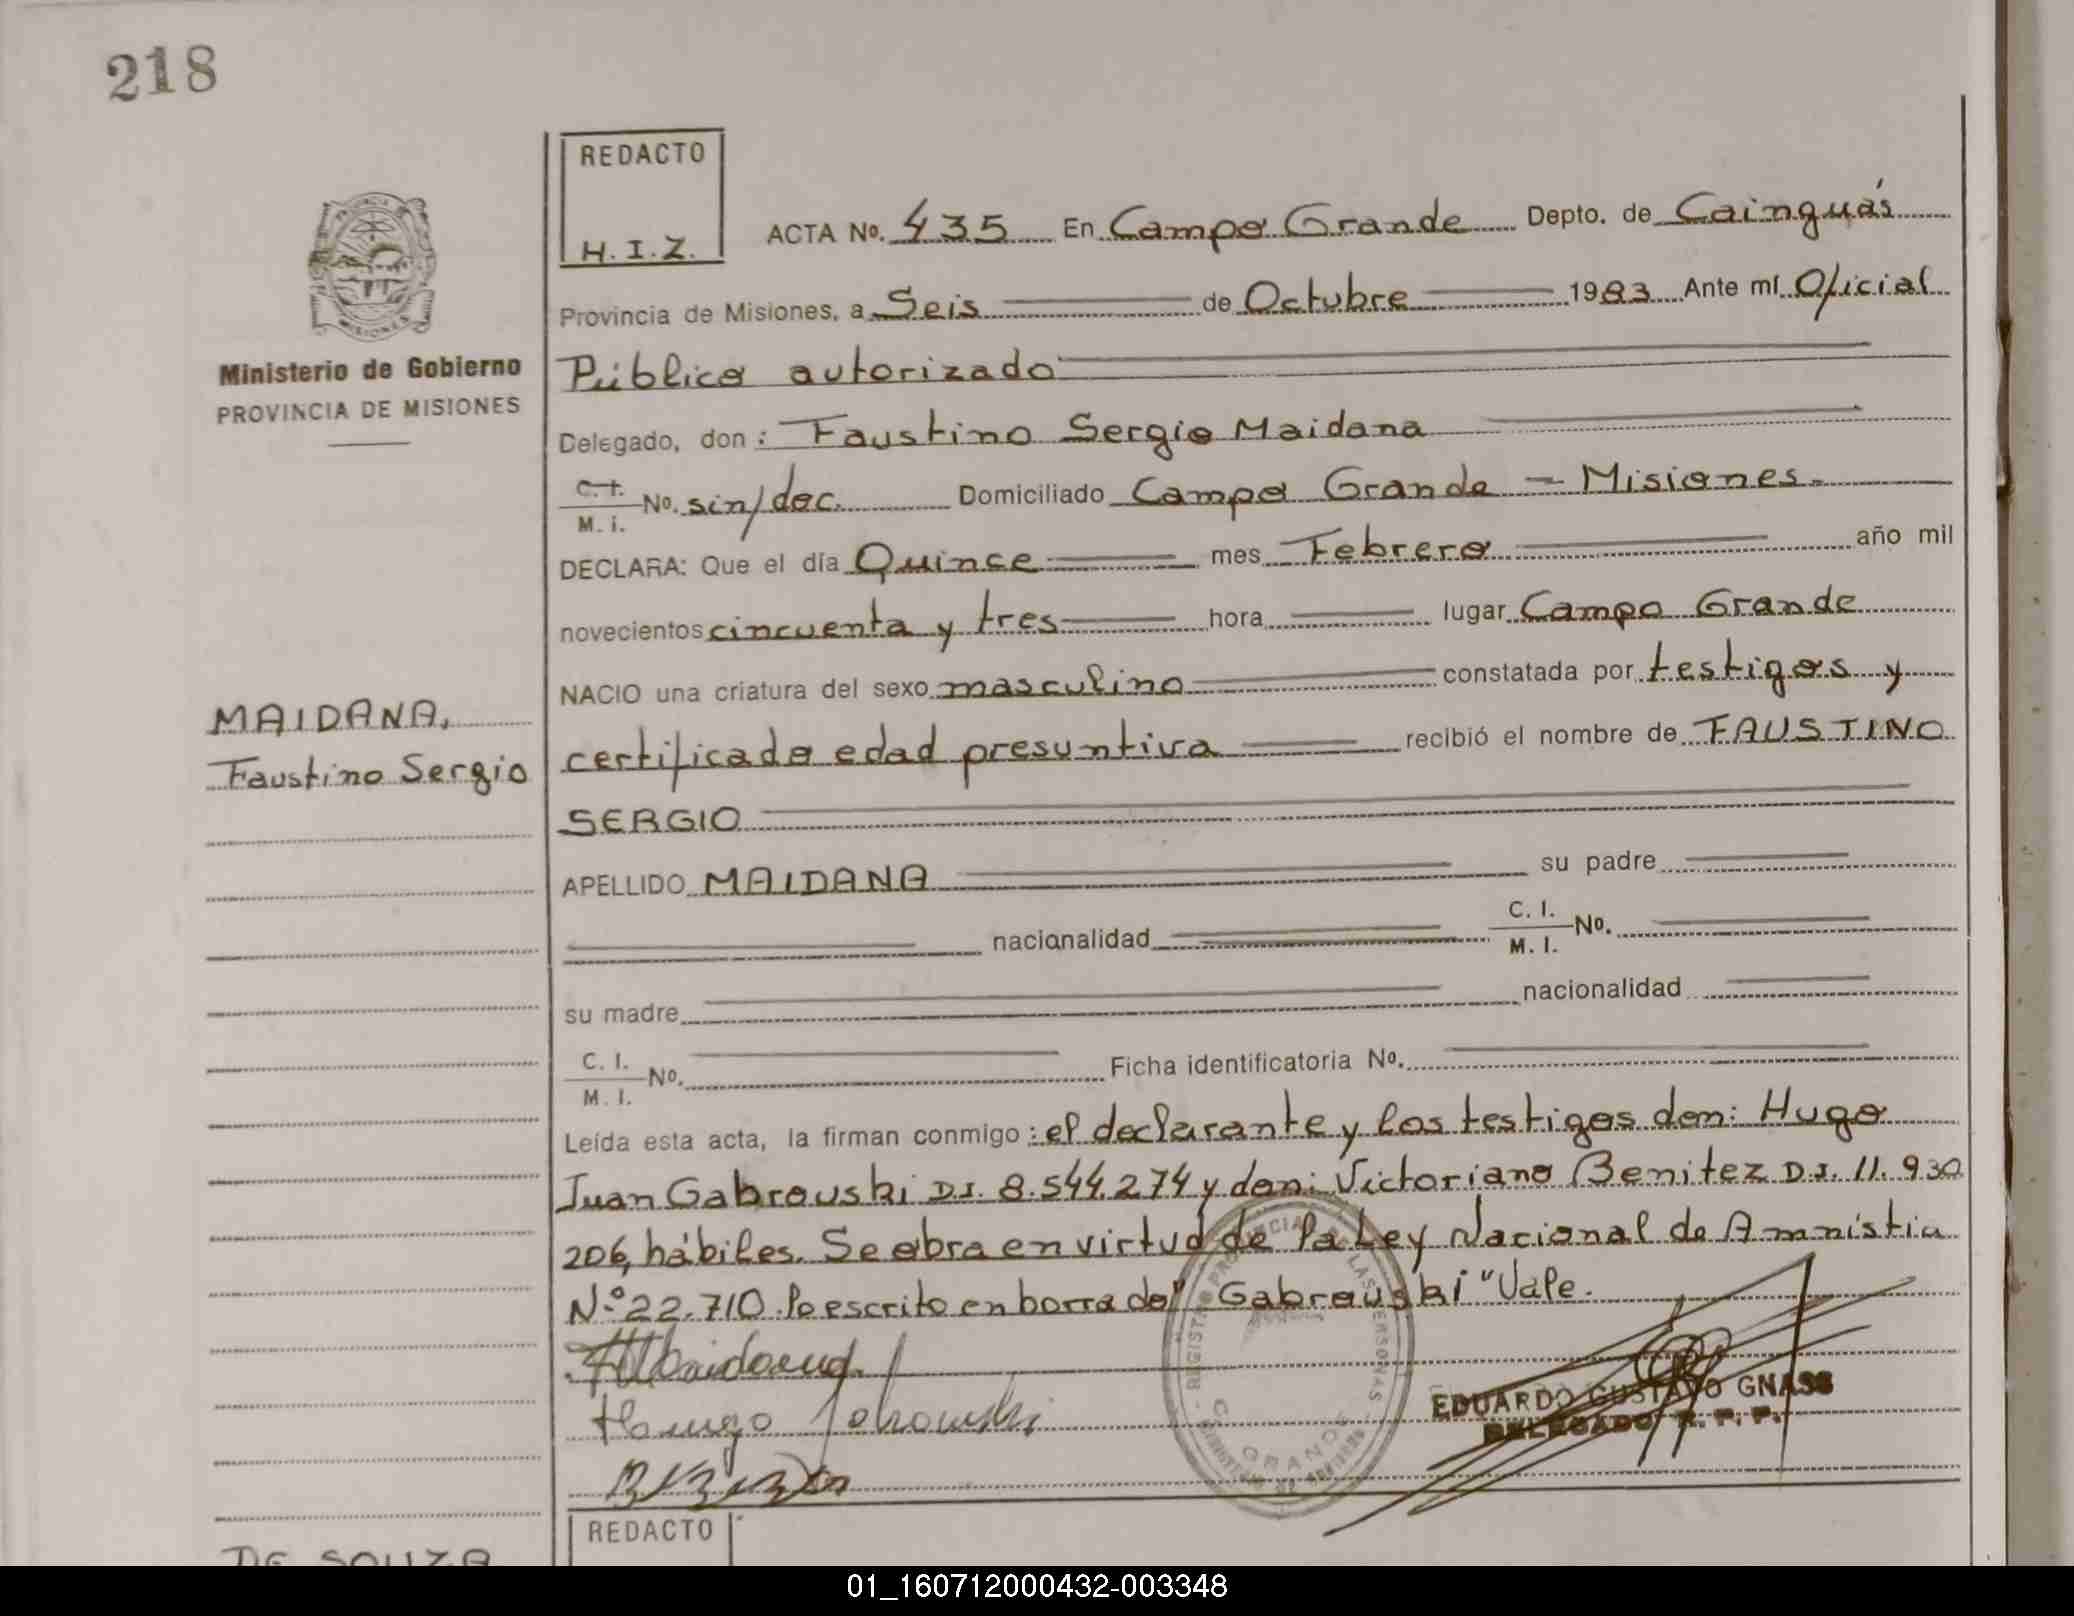 218
REDACTO
H.I.Z.
ACTA No. 435 En Campo Grande Depto. de Cainguás
Provincia de Misiones, a Seis de Octubre 1983 Ante mí Oficial
Público autorizado
Delegado, don: Faustino Sergio Maidana
C.I. M.I. No. sin/doc. Domiciliado Campo Grande - Misiones.
DECLARA: Que el día Quince mes Febrero año mil
novecientos cincuenta y tres hora lugar Campo Grande
NACIO una criatura del sexo masculino constatada por testigos y
certificado edad presuntiva recibió el nombre de FAUSTINO
SERGIO
APELLIDO MAIDANA su padre
nacionalidad C. I. M. I. No.
su madre nacionalidad
C. I. M. I. No. Ficha identificatoria No.
Leída esta acta, la firman conmigo: el declarante y los testigos don: Hugo
Juan Gabrouski D.I. 8.544.274 y don: Victoriano Benitez D.I. 11.930
206, hábiles. Se abra en virtud de la Ley Nacional de Amnistia
N.º 22.710. lo escrito en borrado "Gabrouski" Vale.
Ministerio de Gobierno
PROVINCIA DE MISIONES
MAIDANA,
Faustino Sergio
EDUARDO GUSTAVO GNASS
DELEGADO R. P. P.
REDACTO
DE SOUZA
01_160712000432-003348